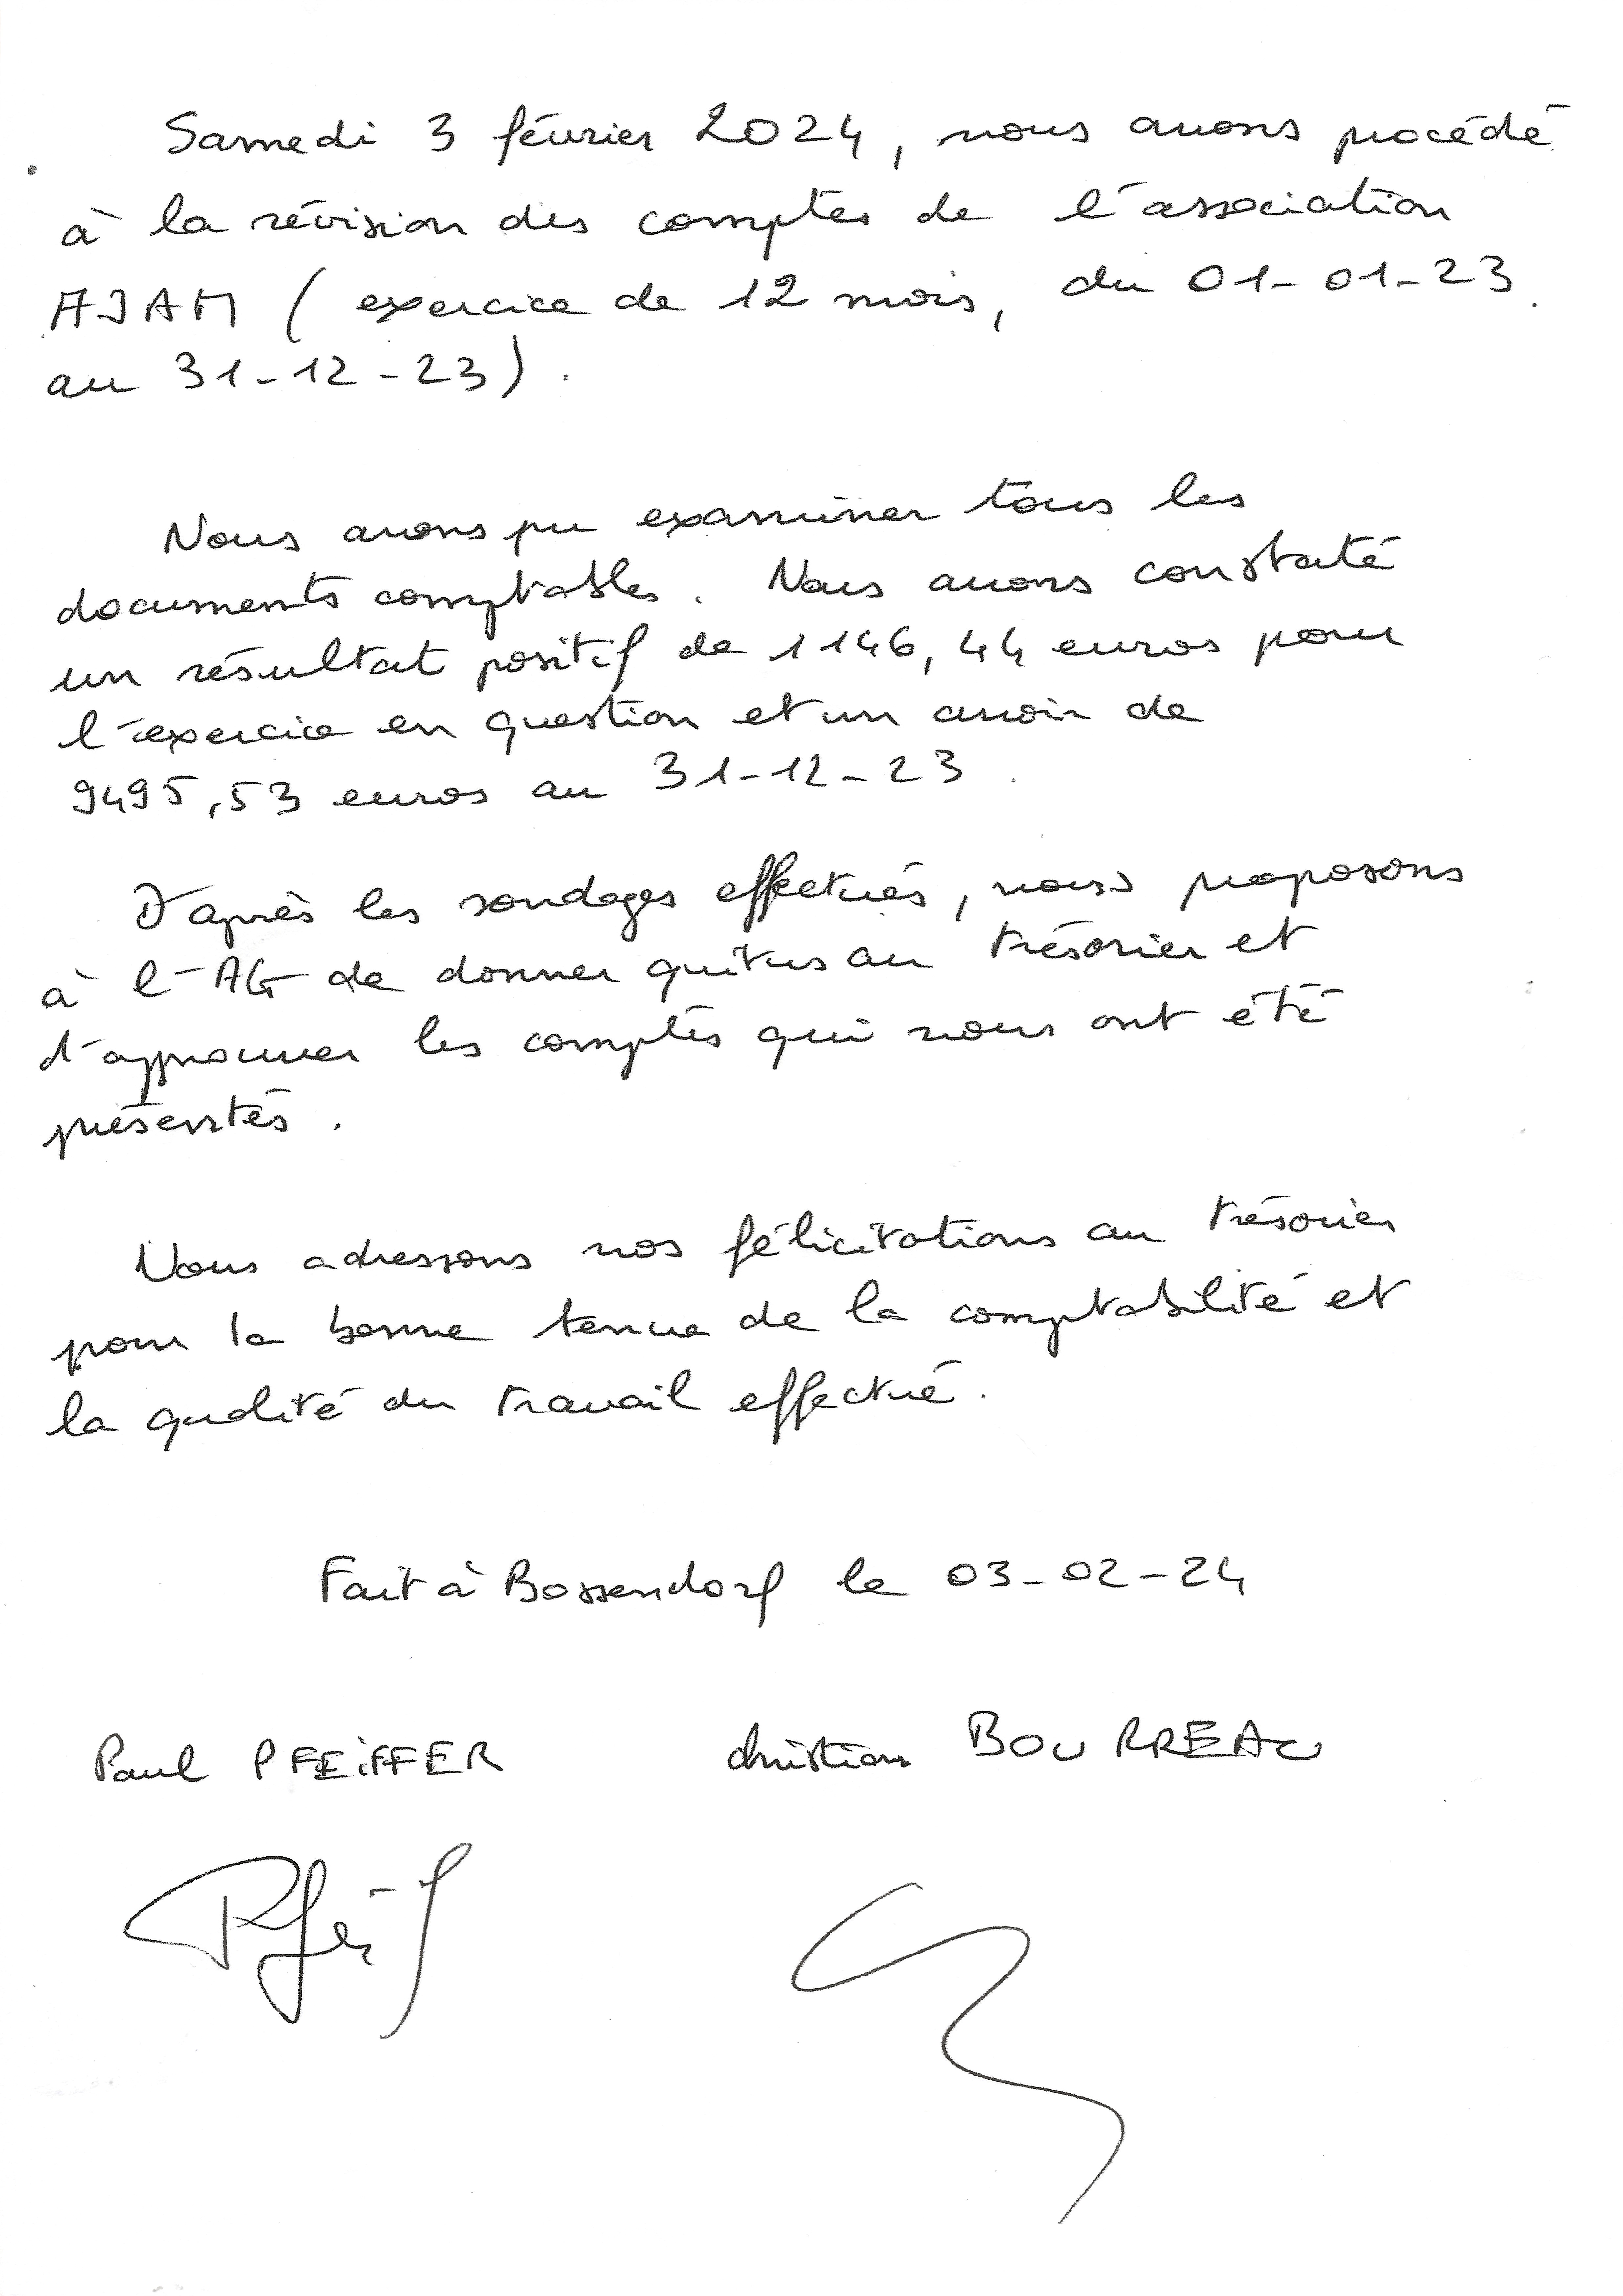 Samedi 3 février 2024, nous avons procédé
à la révision des comptes de l'association
AJAM (exercice de 12 mois, du 01-01-23
au 31-12-23).
Nous avons pu examiner tous les
documents comptables. Nous avons constaté
un résultat positif de 1146,44 euros pour
l'exercice en question et un avoir de
9495,53 euros au 31-12-23.
D'après les sondages effectués, nous proposons
à l'AG de donner quitus au trésorier et
d'approuver les comptes qui nous ont été
présentés.
Nous adressons nos félicitations au trésorier
pour la bonne tenue de la comptabilité et
la qualité du travail effectué.
Fait à Bossendorf le 03-02-24
Paul PFEiFFER Christian BOURREAU